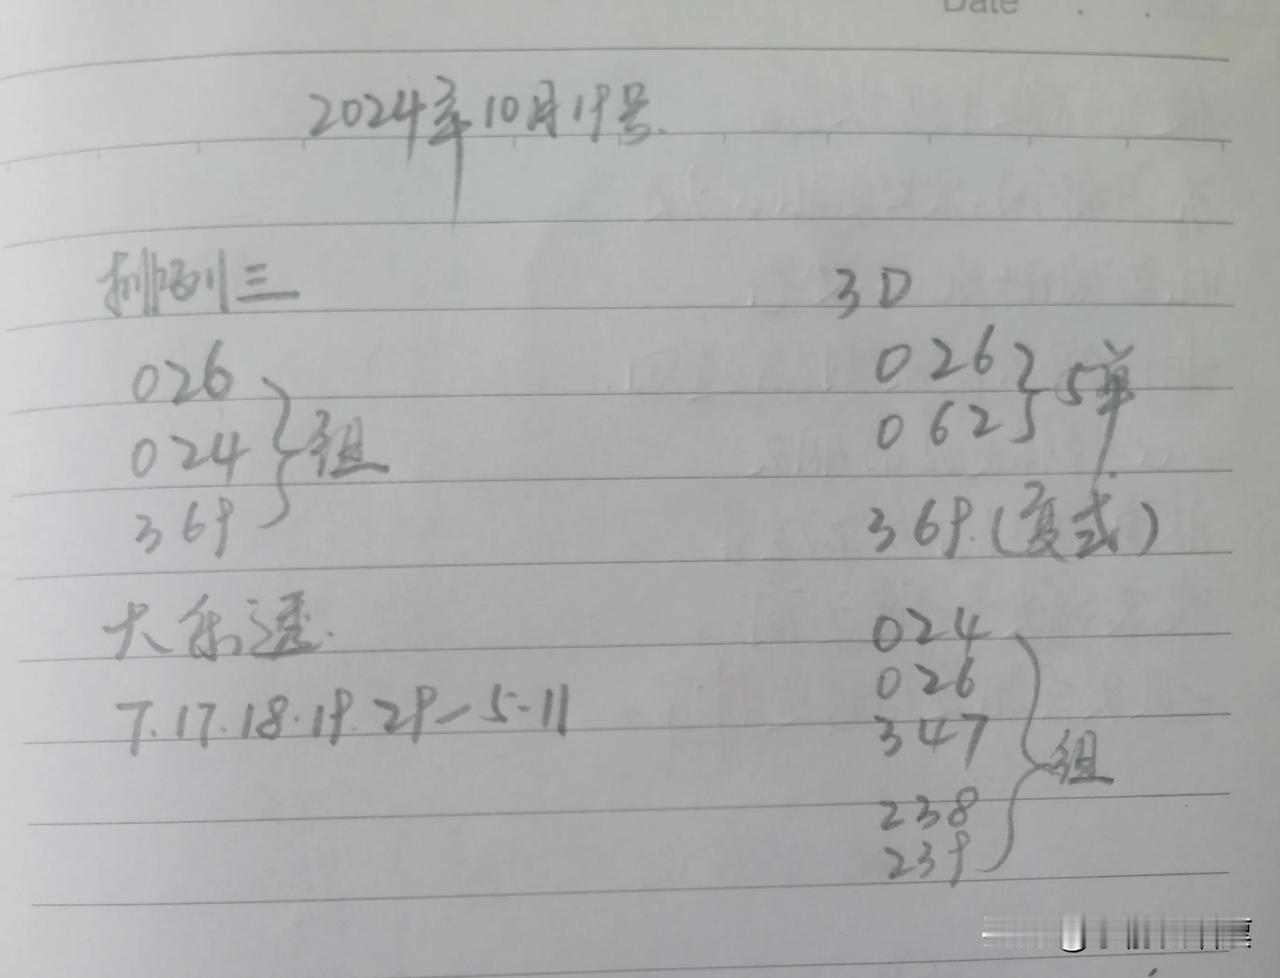 Date
2024年10月19号.
排列三
026
024
369
组
大乐透.
7.17.18.19.29-5-11
3D
026
062
5单
369.(复式)
024
026
347
238
239
组